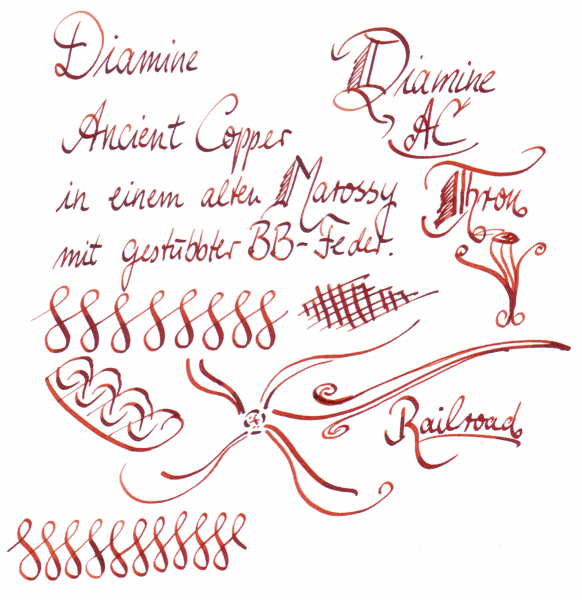 Diamine
Ancient Copper
in einem alten Marossy
mit gestubbter BB-Feder.
Diamine
AC
Thron
Railroad